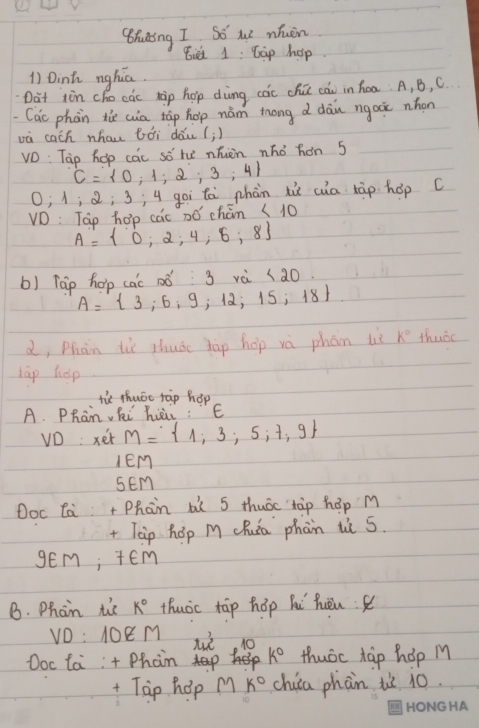 Chương I Số tự nhiên
Tiết 1 : Tập hợp
1) Định nghĩa
- Đặt tên cho các tập hợp dùng các chữ cái in hoa A, B, C...
- Các phần tử của tập hợp nằm trong 2 dấu ngoặc nhọn
và cách nhau bởi dấu (;)
VD : Tập hợp các số tự nhiên nhỏ hơn 5
C = {0 ; 1 ; 2 ; 3 ; 4}
0 ; 1 ; 2 ; 3 ; 4 gọi là phần tử của tập hợp C
VD : Tập hợp các số chẵn < 10
A = { 0 ; 2 ; 4 ; 6 ; 8}
b) Tập hợp các số : 3 và < 20
A = { 3 ; 6 ; 9 ; 12 ; 15 ; 18}
2, Phần tử thuộc tập hợp và phần tử K° thuộc
tập hợp
tử thuộc tập hợp
A. Phần kí hiệu : ∈
VD : xét M = { 1 ; 3 ; 5 ; 7, 9}
1∈M
5∈M
Đọc là : + Phần tử 5 thuộc tập hợp M
+ Tập hợp M chứa phần tử 5.
9∈M ; 7∈M
B. Phần tử K° thuộc tập hợp kí hiệu : ∉
VD : 10∉M
tử 10
Đọc là : + Phần tập hợp K° thuộc tập hợp M
+ Tập hợp M K° chứa phần tử 10.
HONG HA